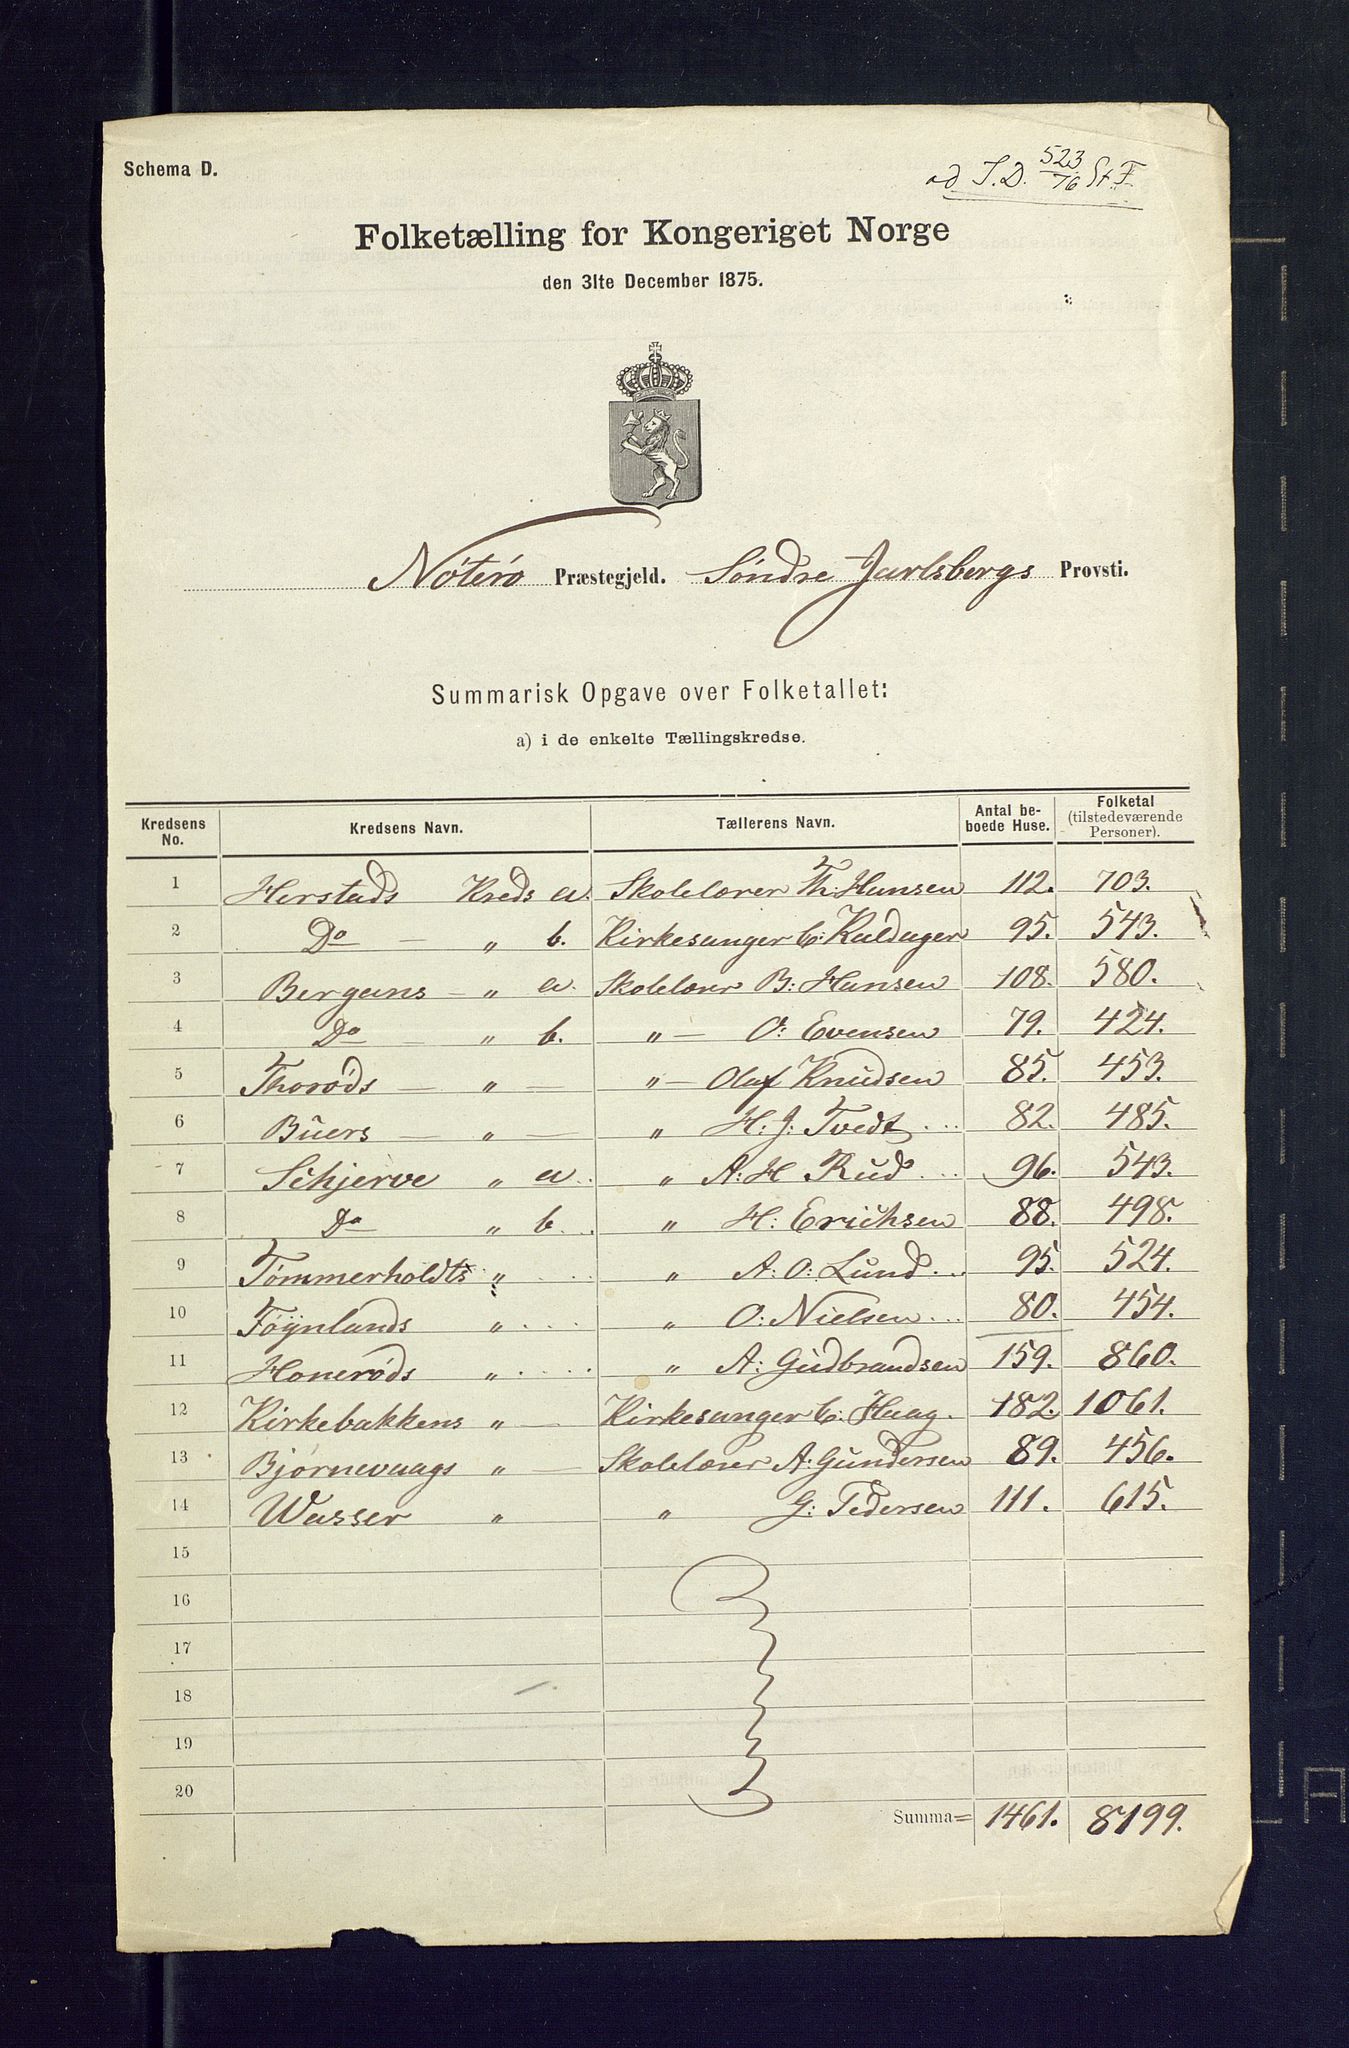 Schema D.
ad I.D. 523/76 St. F.
Folketælling for Kongeriget Norge
den 31te December 1875.
Nøterø Præstegjeld. Søndre Jarlsbergs Provsti.
Summarisk Opgave over Folketallet:
a) i de enkelte Tællingskredse.
Kredsens No. Kredsens Navn. Tællerens Navn. Antal beboede Huse. Folketal (tilstedeværende Personer).
1 Herstads Kreds a. Skolelærer Th: Hansen 112. 703.
2 Do — " b. Kirkesanger C: Kaldager 95. 543.
3 Bergans — " a. Skolelærer B: Hansen 108. 580.
4 Do " b. " — O: Evensen 79. 424.
5 Thorøds — " — " — Olaf Knudsen 85. 453.
6 Buers — " — " H. J: Tvedt 82. 485.
7 Schjerve " a. " A: H Rud 96. 543.
8 Do " b. " H: Erichsen 88. 498.
9 Tømmerholdts " " A: O: Lund 95. 524.
10 Føynlands " " O: Nielsen 80. 454.
11 Honerøds " " A: Gudbrandsen 159. 860.
12 Kirkebakkens " — Kirkesanger C: Haag. 182. 1061.
13 Bjørnevaags " — Skolelærer A: Gundersen 89. 456.
14 Wasser " " G: Pedersen 111. 615.
15
16
17
18
19
20
Summa= 1461. 8199.